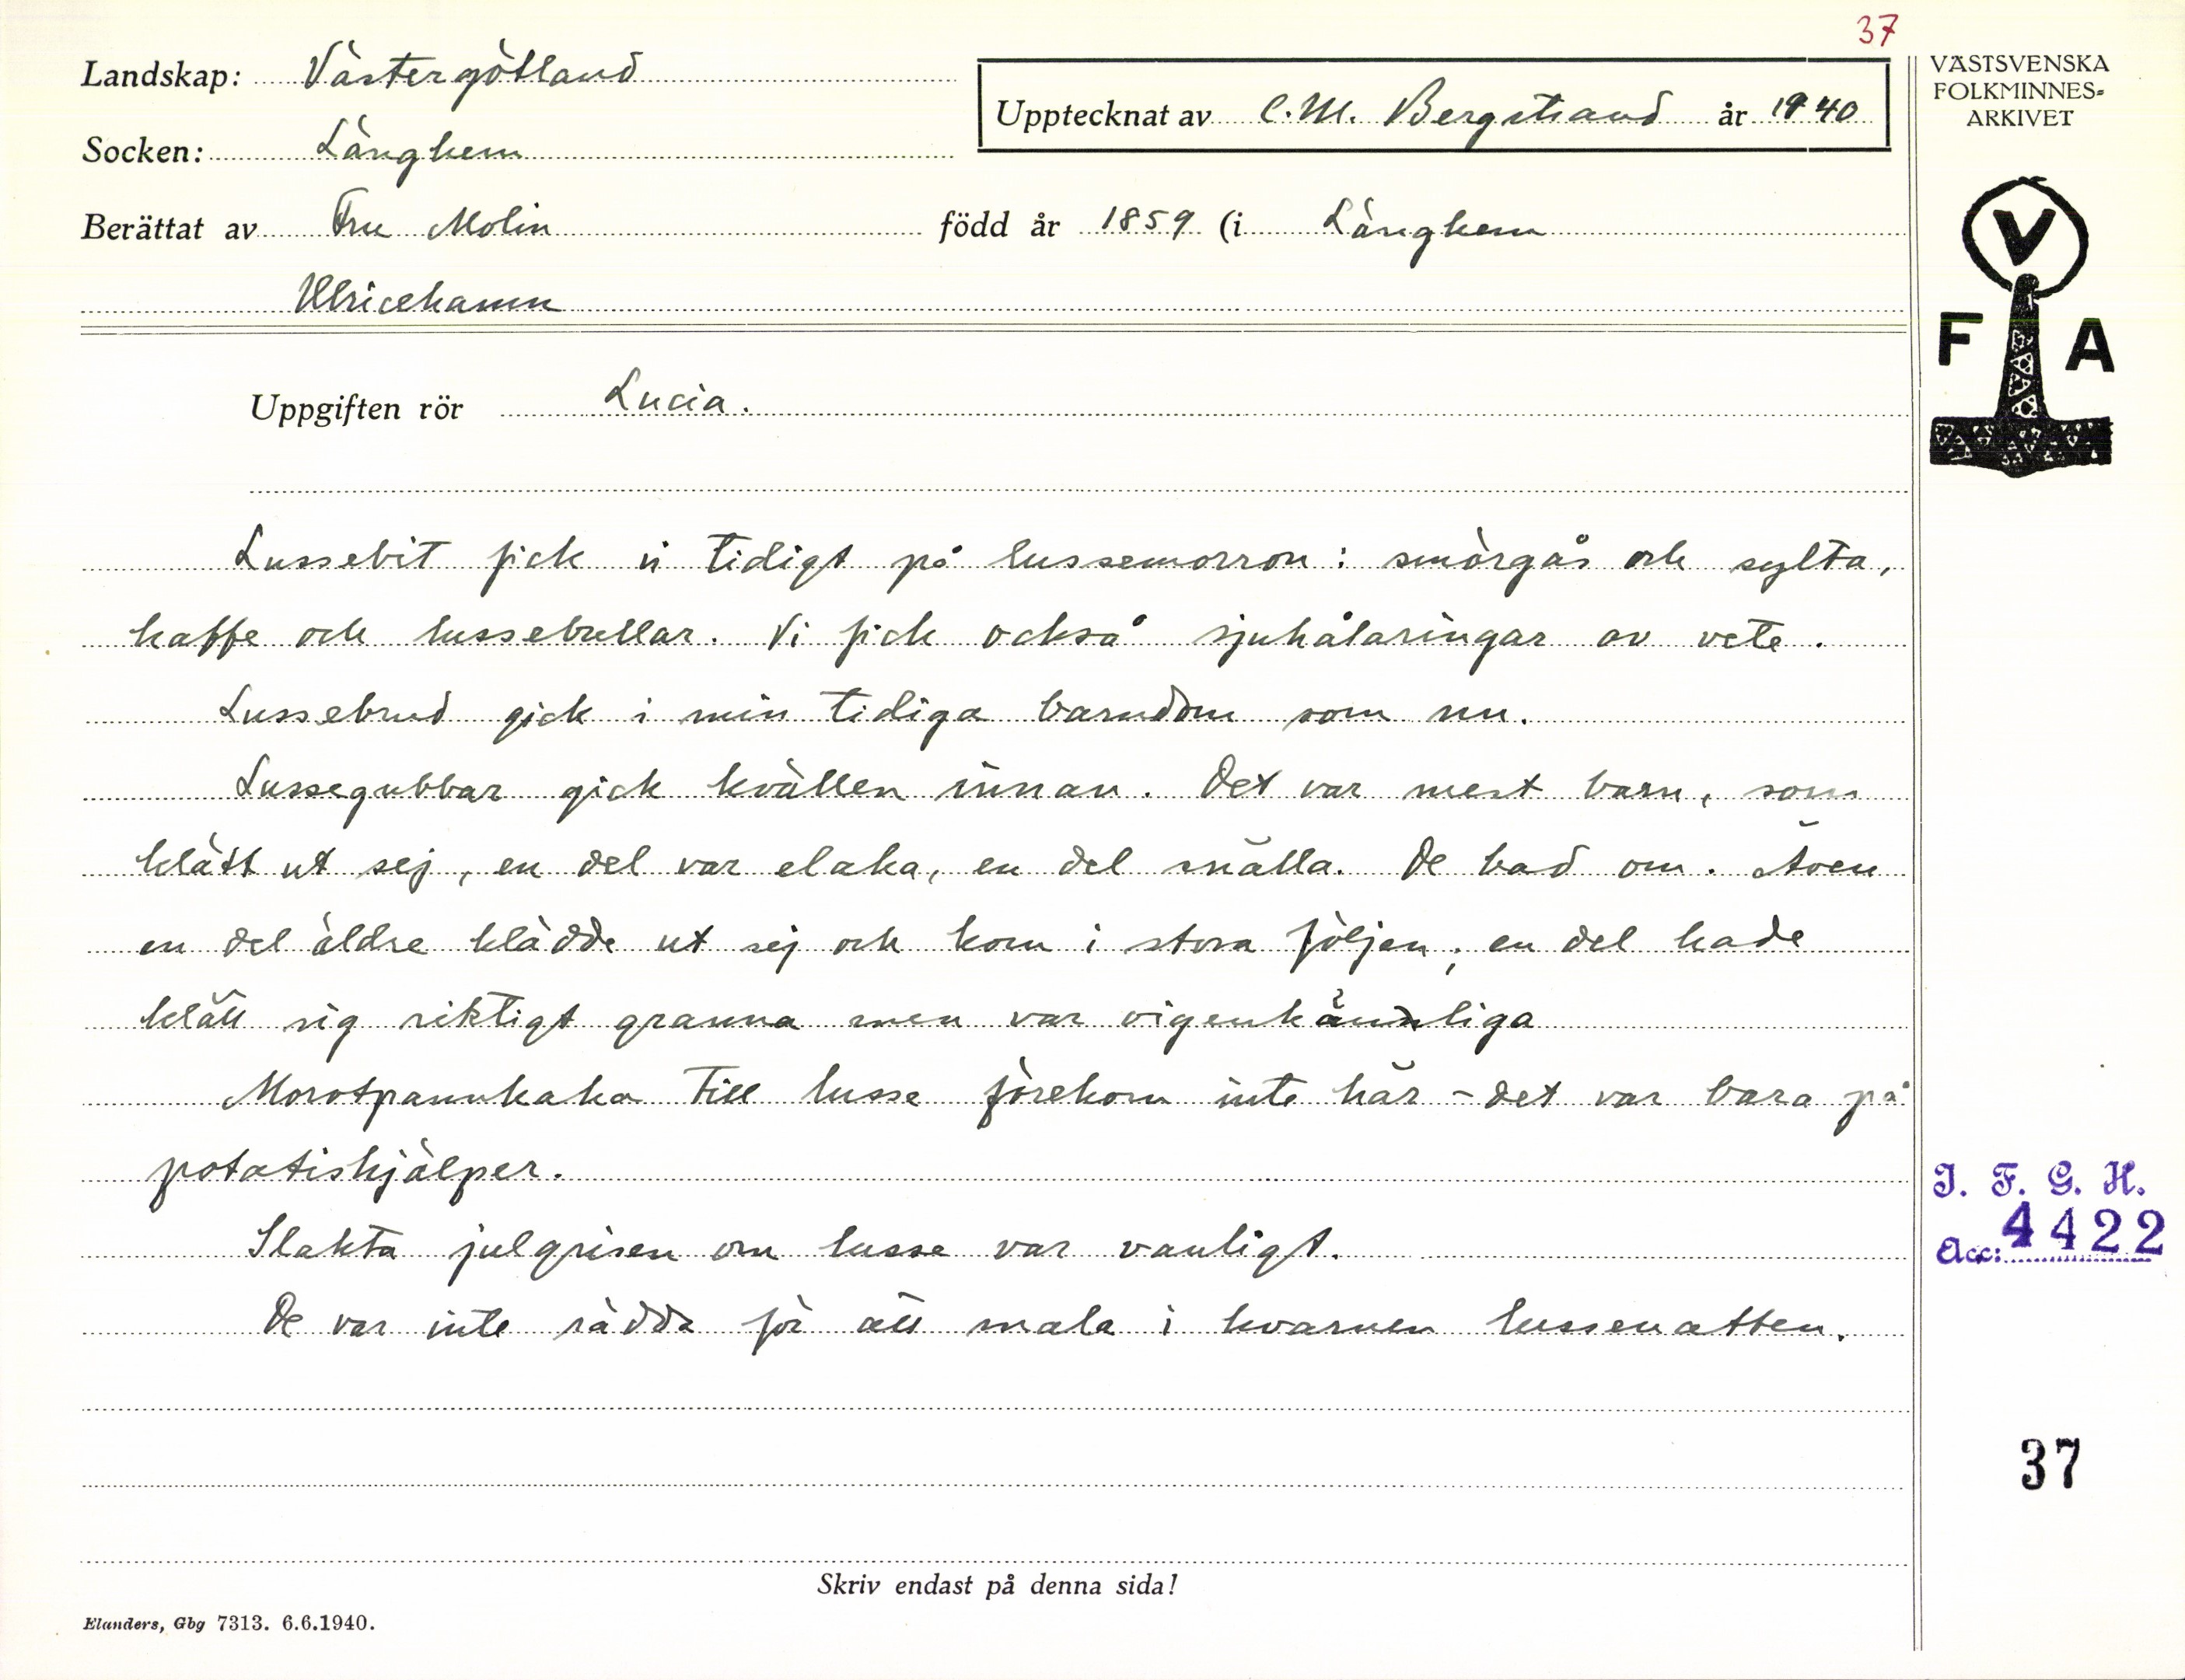 37
Landskap: Västergötland
Upptecknat av C. M. Bergstrand år 1940
VÄSTSVENSKA
FOLKMINNES=
ARKIVET
Socken: Länghem
Berättat av Fru Molin född år 1859 (i Länghem
Ulricehamn
V
F A
Uppgiften rör Lucia.
Lussebit fick vi tidigt på lussemorron: smörgås och sylta,
kaffe och lussebullar. Vi fick också sjuhålaringar av vete.
Lussebrud gick i min tidiga barndom som nu.
Lussegubbar gick kvällen innan. Det var mest barn, som
klätt ut sej, en del var elaka, en del snälla. De bad om. Även
en del äldre klädde ut sej och kom i stora följen; en del hade
klätt sig riktigt granna men var oigenkännliga
Morotpannkaka till lusse förekom inte här - det var bara på
potatishjälper.
Slakta julgrisen om lusse var vanligt.
De var inte rädda för att mala i kvarnen lussenatten.
I. F. G. H.
Acc: 4422
37
Skriv endast på denna sida!
Elanders, Gbg 7313. 6.6.1940.